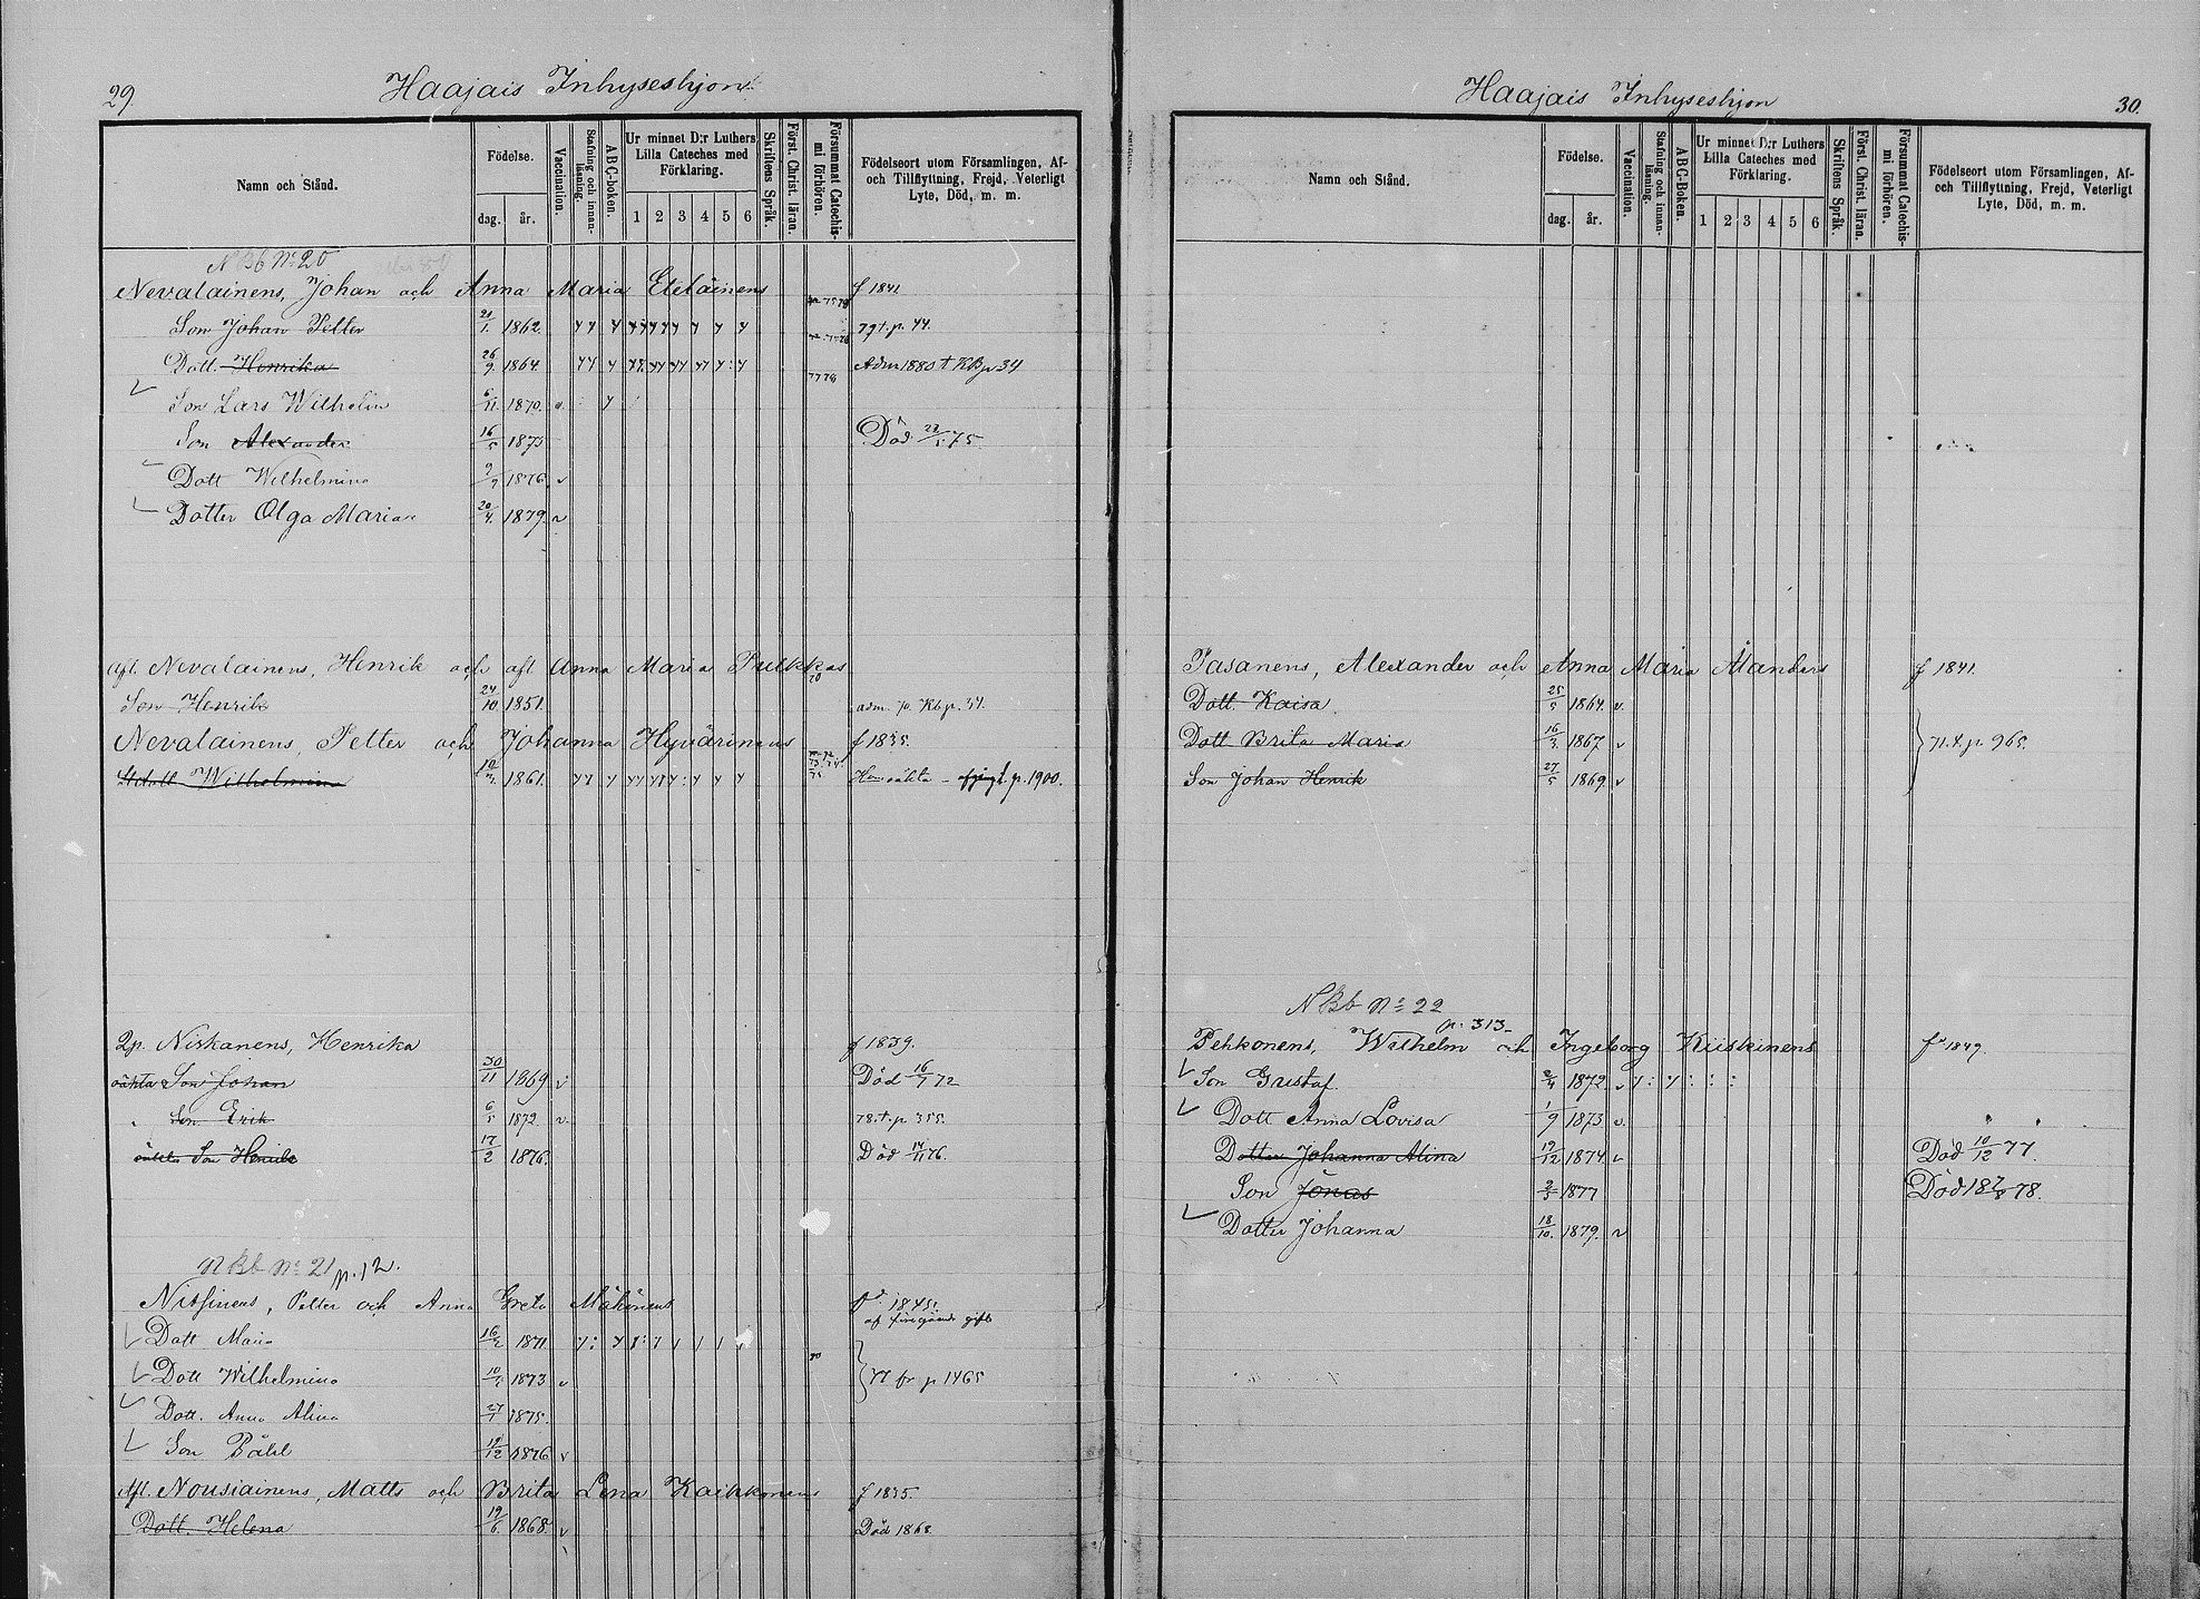 29
Haajais Inhyseshjon
Namn och Stånd.
Födelse.
dag.
år.
Vaccination.
Stafning och innanläsning.
A B C-boken.
Ur minnet D:r Luthers Lilla Cateches med Förklaring.
1 2 3 4 5 6
Skriftens Språk.
Först. Christ. läran.
Försummat Catechismi förhören.
Födelseort utom Församlingen, Af- och Tillflyttning, Frejd, Veterligt Lyte, Död, m. m.
N Bb No 20
Nevalainens, Johan och Anna Maria Eteläinens f 1841.
Son Johan Petter 21/1. 1862. 79 t. p. 44.
Dott. Henrika 26/9. 1864. Adm 1880 t KBp 34
Son Lars Wilhelm 6/11. 1870. v.
Son Alexander 16/5 1873 Död 75
Dott Wilhelmina 9/9 1876. v
Dotter Olga Maria 20/4. 1879. v
afl. Nevalainens, Henrik och afl. Anna Maria Pulkkas
Son Henrik 24/10 1851. adm. Kb p. 34.
Nevalainens, Petter och Johanna Hyvärinens f 1835.
Wilhelmina 1861. p. 1900.
Qp. Niskanens, Henrika f 1839.
oäkta Son Johan 30/11 1869 v Död 16/7 72
Son Erik 6/5 1872. v. 78. t. p. 355.
oäkta Son Henrik 17/2 1876. Död 14/11 76.
N Bb No 21 p. 12.
Nissinens, Petter och Anna Greta f. 1845.
Dott Maria 16/2 1871.
Dott Wilhelmina 1873 v fr p 1465
Dott. Anna Alina 27/1 1875.
Son Påhl 19/12 1876 v
Afl. Nousiainens, Matts och Brita Lena Kaikkonens f 1835.
Dott. Helena 19/6. 1868. v Död 1868.
Haajais Inhyseshjon
30.
Namn och Stånd.
Födelse.
dag.
år.
Vaccination.
Stafning och innanläsning.
A B C-Boken.
Ur minnet D:r Luthers Lilla Cateches med Förklaring.
1 2 3 4 5 6
Skriftens Språk.
Först. Christ. läran.
Försummat Catechismi förhören.
Födelseort utom Församlingen, Af- och Tillflyttning, Frejd, Veterligt Lyte, Död, m. m.
Pasanens, Alexander och Anna Maria Ålanders f 1841.
Dott. Kaisa 25/5 1864. v.
Dott Brita Maria 16/3. 1867 v 71. t. p. 965.
Son Johan Henrik 27/5 1869. v
N Bb No 22
p. 313
Pehkonens, Wilhelm och Ingeborg Kiiskinens f. 1849.
Son Gustaf. 2/4 1872 v
Dott Anna Lovisa 1/9 1873 v.
Dotter Johanna Alina 19/12 1874. v Död 10/12 77.
Son Jonas 2/5 1877 Död 78.
Dotter Johanna 18/10. 1879. v